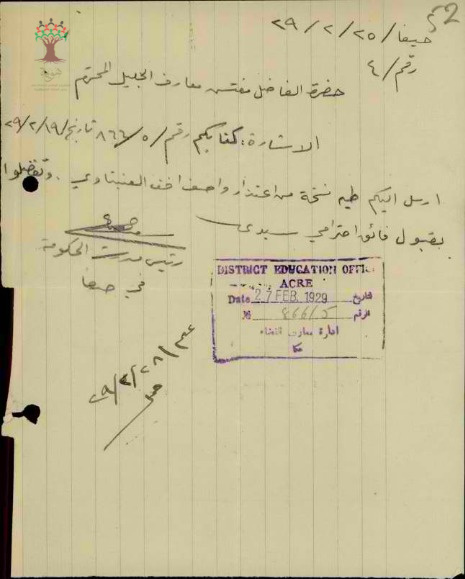 52
حيفا / ٢٥ / ٢ / ٢٩
رقم / ٤
حضرة الفاضل مفتش معارف الجليل المحترم
الاشارة: كتابكم رقم / ٥ / ٨٦٦ تاريخ ١٩ / ٢ / ٢٩
ارسل اليكم طيه نسخة من اعتذار واصف افندي . وتفضلوا
بقبول فائق احترامي سيدي
رئيس مدرسة الحكومة
في
DISTRICT EDUCATION OFFI
ACRE
Date 27 FEB. 1929 تاريخ
№ 866/5 الرقم
ادارة معارف
عكا
٢٨ / ٢ / ٢٩